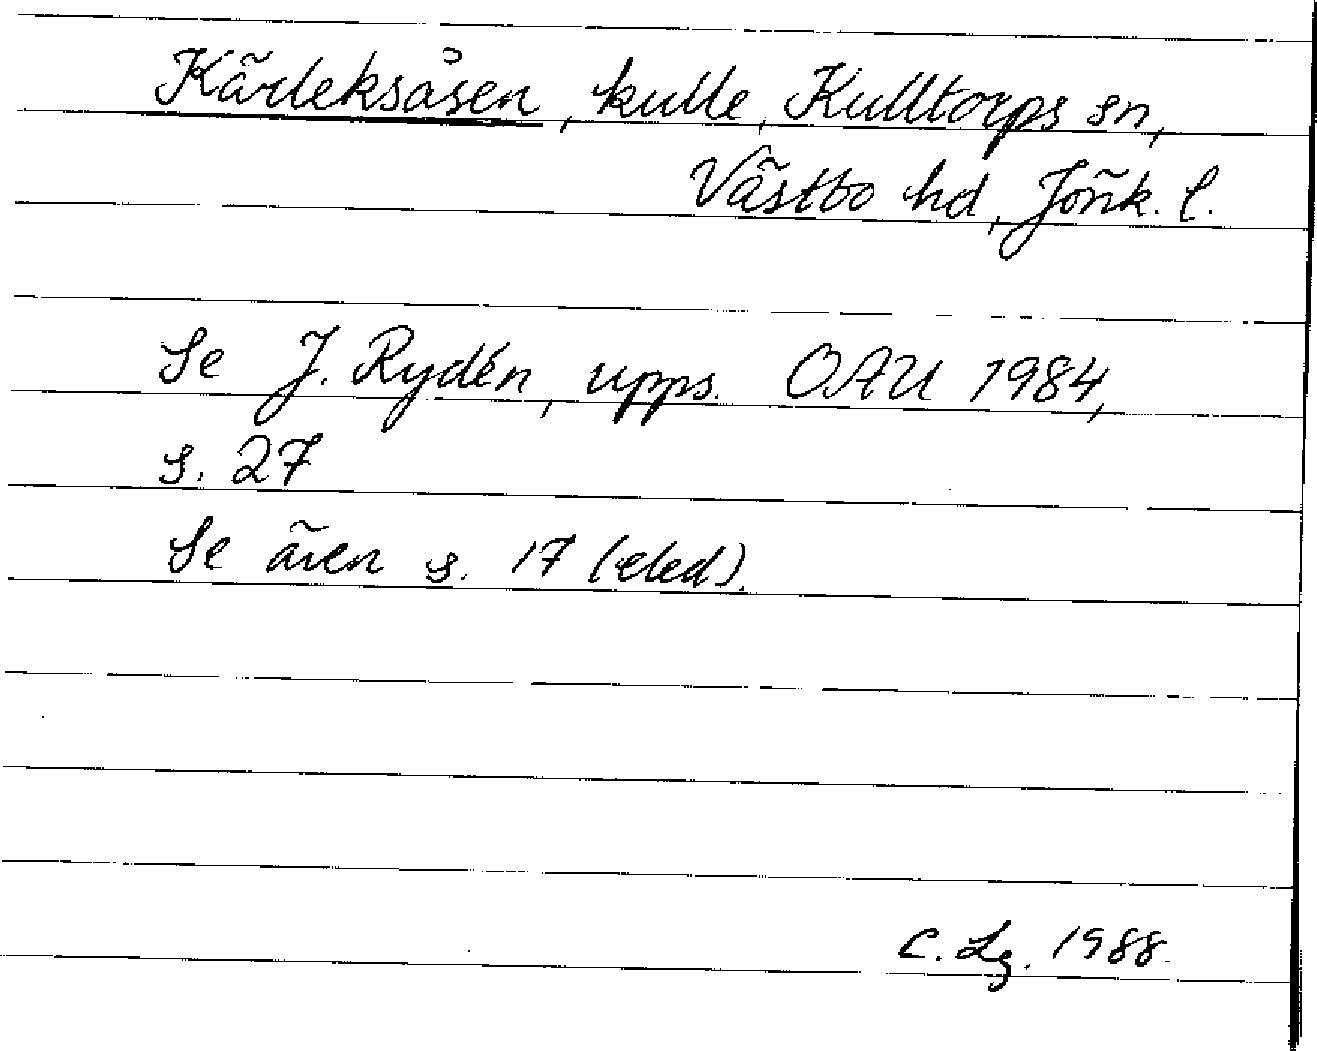 Kärleksåsen, kulle, Kulltorps sn,
Västbo hd, Jönk. l.
Se J. Rydén, upps. OAU 1984,
s. 27
Se även s. 17 (eled).
C. Lg. 1988